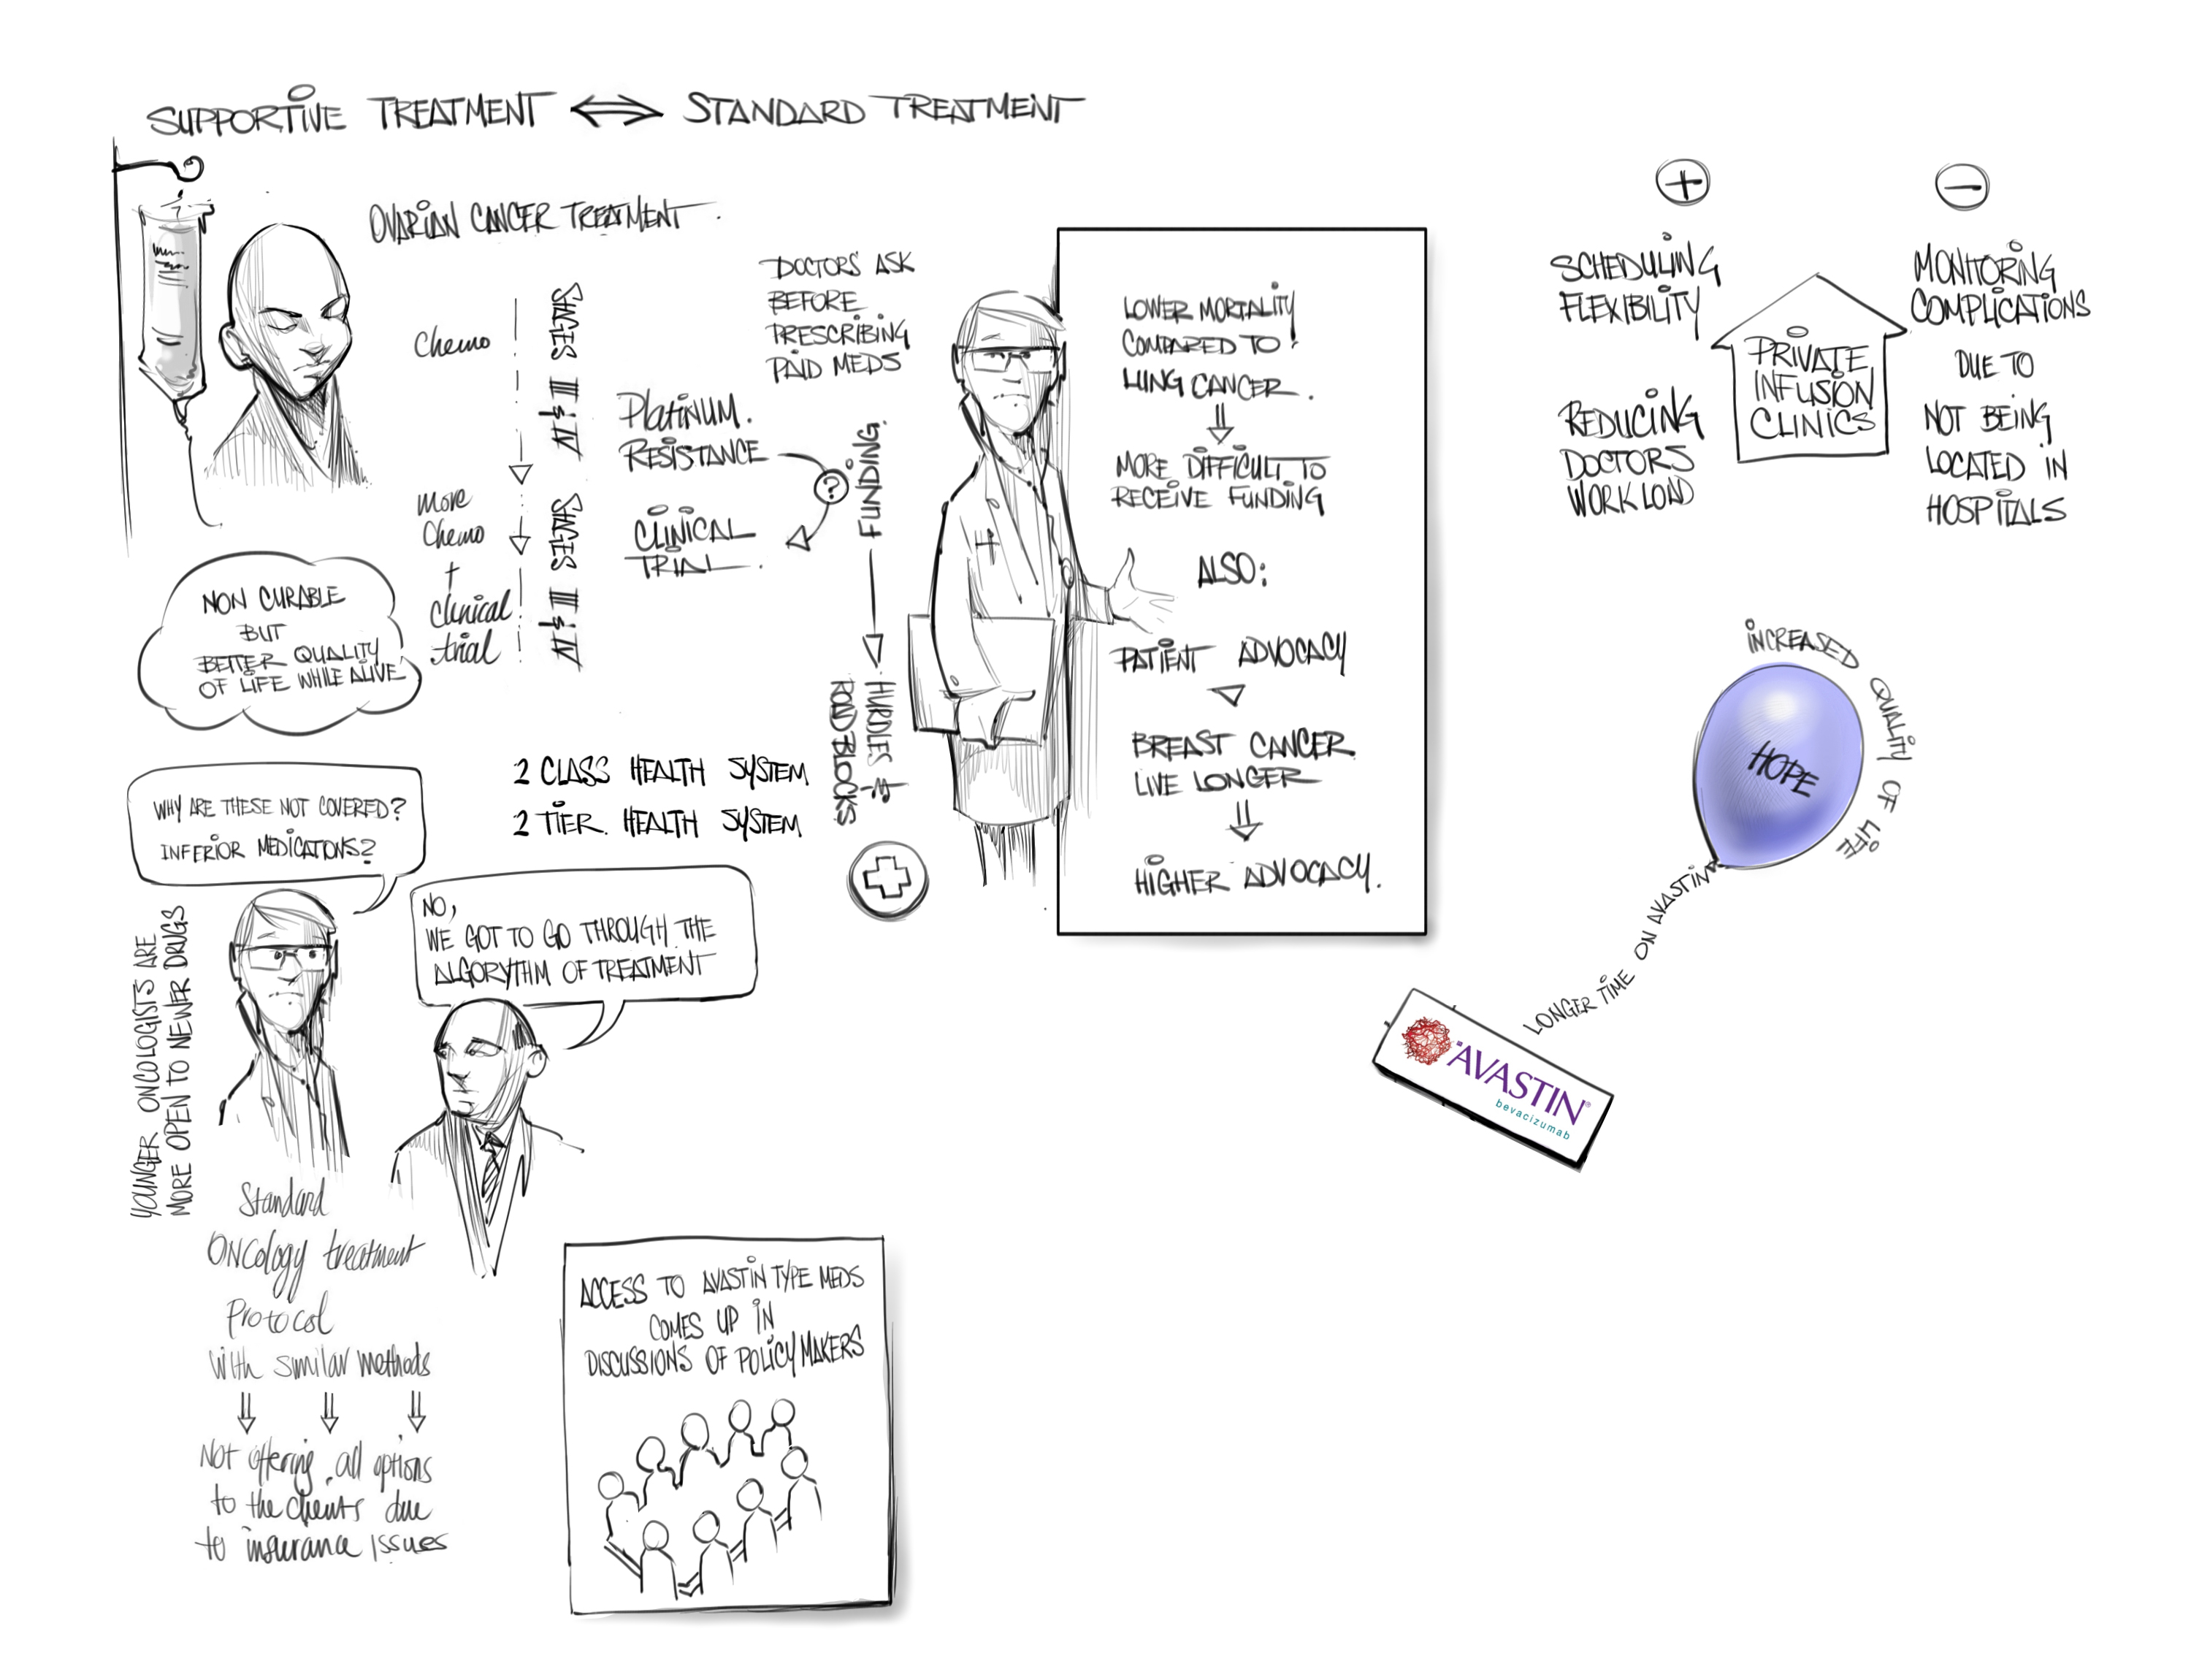 SUPPORTIVE TREATMENT ⇔ STANDARD TREATMENT
OVARIAN CANCER TREATMENT
Chemo
STAGES
III & IV
more
Chemo
+
clinical
trial
STAGES
III & IV
PlatiNUM
RESISTANCE
?
CLINICAL
TRIAL
DOCTORS ASK
BEFORE
PRESCRIBING
PAID MEDS
FUNDING
HURDLES &
ROAD BLOCKS
NON CURABLE
BUT
BETTER QUALITY
OF LIFE WHILE ALIVE
2 CLASS HEALTH SYSTEM
2 TIER HEALTH SYSTEM
WHY ARE THESE NOT COVERED?
INFERIOR MEDICATIONS?
NO,
WE GOT TO GO THROUGH THE
ALGORYTHM OF TREATMENT
YOUNGER ONCOLOGISTS ARE
MORE OPEN TO NEWER DRUGS
Standard
ONCology treatment
Protocol
with similar methods
Not offering all options
to the clients due
to insurance issues
ACCESS TO AVASTIN TYPE MEDS
COMES UP IN
DISCUSSIONS OF POLICY MAKERS
LOWER MORTALITY
COMPARED TO
LUNG CANCER.
MORE DIFFICULT TO
RECEIVE FUNDING
ALSO:
PATIENT ADVOCACY
BREAST CANCER
LIVE LONGER
HIGHER ADVOCACY.
+
SCHEDULING
FLEXIBILITY
REDUCING
DOCTORS
WORKLOAD
PRIVATE
INFUSION
CLINICS
−
MONITORING
COMPLICATIONS
DUE TO
NOT BEING
LOCATED IN
HOSPITALS
INCREASED QUALITY OF LIFE
HOPE
LONGER TIME ON AVASTIN
AVASTIN®
bevacizumab